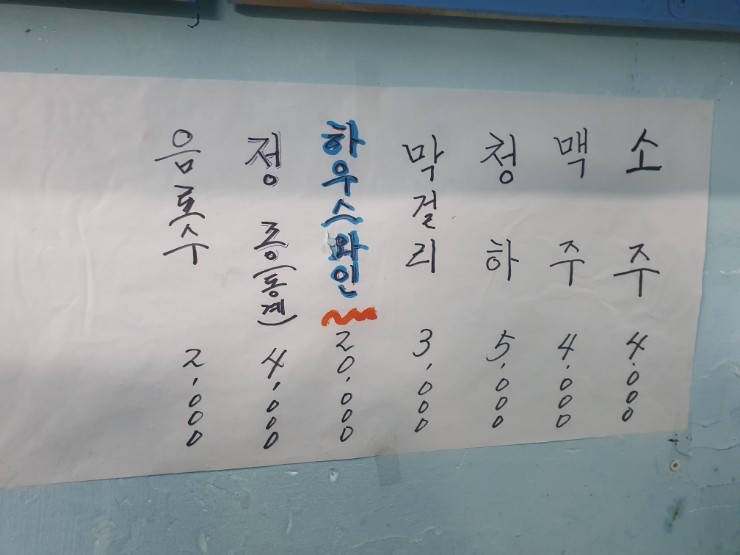 소주 4.000
맥주 4.000
청하 5.000
막걸리 3.000
하우스와인 20.000
정종(동계) 4.000
음료수 2.000